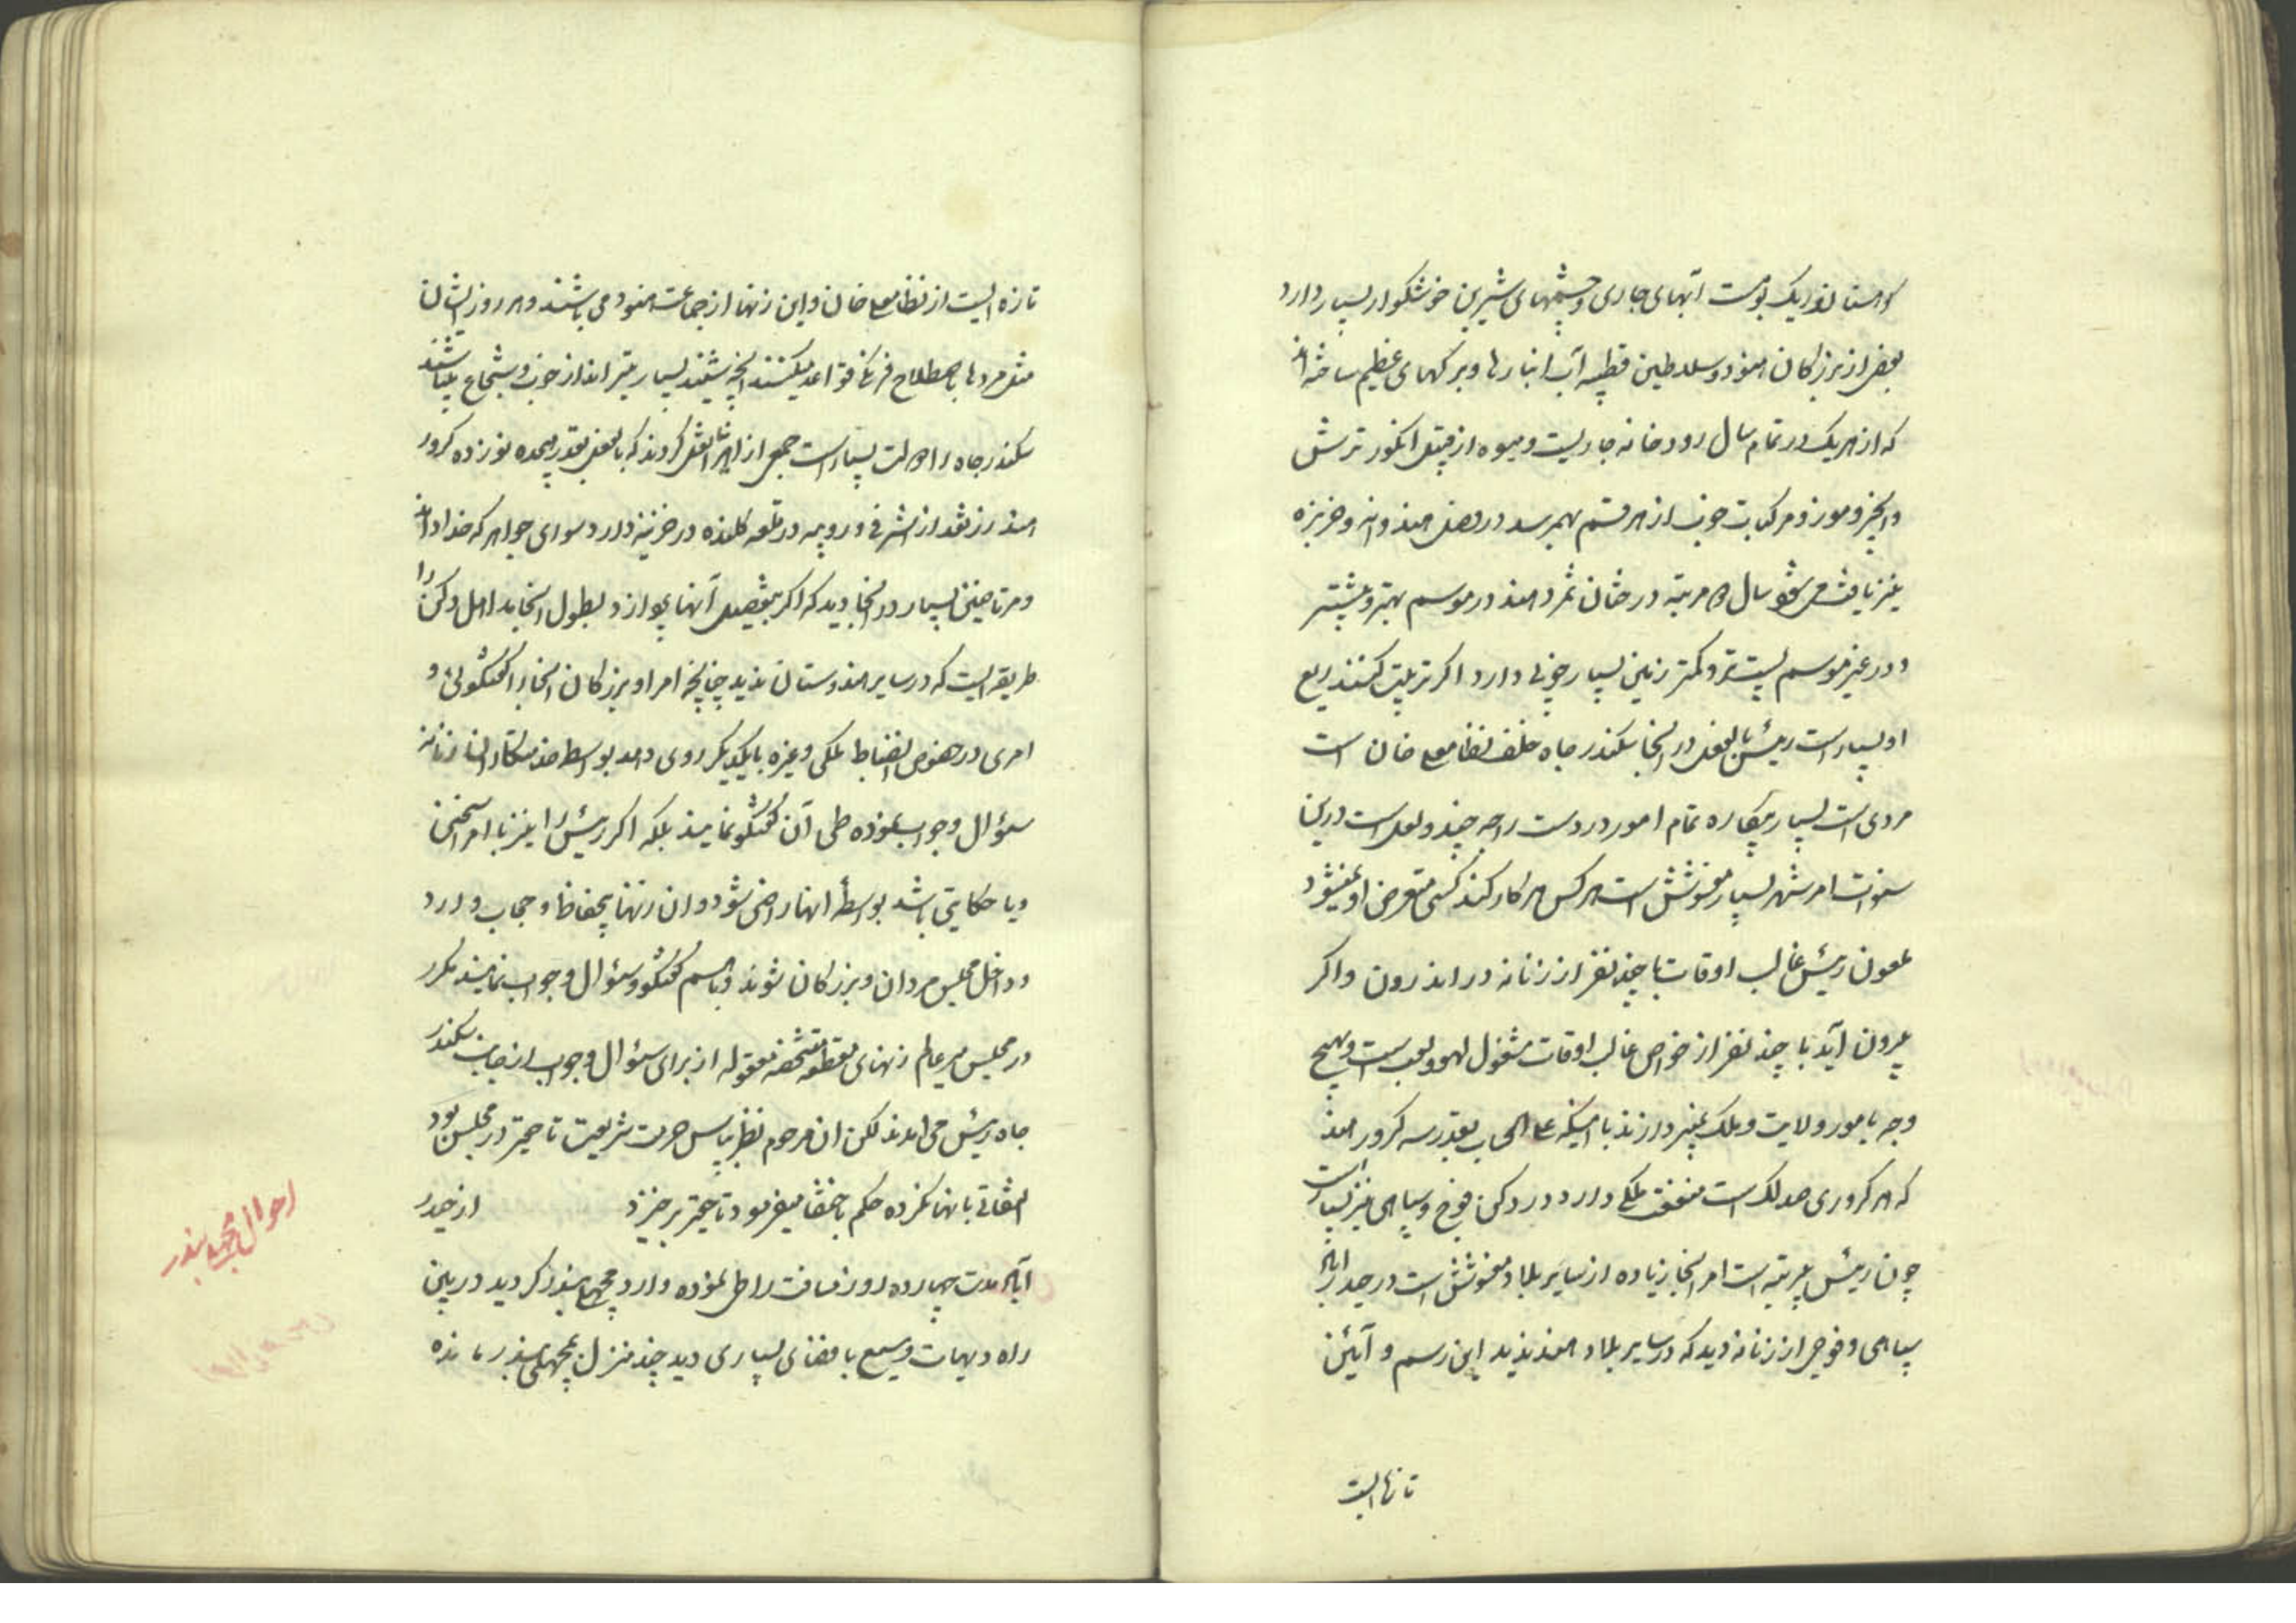 کوهستان نزدیک بوده است آبهای جاری و چشمهای شیرین خوشگوار بسیار دارد
بعضی از بزرگان هنود و سلاطین قطبیه آب انبارها و برکهای عظیم ساخته اند
که از هر یک در تمام سال رودخانه جاریست و میوه از قبیل انگور ترش
و انجیر و موز و مرکبات خوب از هر قسم بهمرسد در بعض هندوانه و خربزه
نیز یافت می شود سال دو مرتبه درختان ثمر دهند در موسم بهتر و بیشتر
و در غیر موسم پست تر و کمتر زمین بسیار خوبی دارد اگر تربیت کنند ریع
او بسیار است رئیس بالفعل در آنجا سکندر جاه خلف نظامعلی خان است
مردی است بسیار بیکاره تمام امور در دست راجه چندولعل است درین
سنوات امر شهر بسیار مغشوش است هر کس هر کار کند کسی متعرض او نمیشود
رئیس غالب اوقات با چند نفر از زنانه در اندرون و اگر
بیرون آید با چند نفر از خواص غالب اوقات مشغول لهو و لعب است و بهیچ
وجه بامور ولایت و ملک نپردازند با اینکه علی الحساب بقدر سه کرور هند
که هر کروری صد لک است منفعت ملکی دارد در دکن فوج و سپاهی نیز بسیار است
چون رئیس بی رتبه است امر آنجا زیاده از سایر بلاد مغشوش است در حیدراباد
سپاهی و فوجی از زنانه دید که در سایر بلاد هند ندید این رسم و آئین
تازه ایست
تازه ایست از نظامعلی خان و این زنها از جماعت هنود می باشند و هر روز ایشان
مثل مردها باصطلاح فرنگ قواعد میکنند آنچه شنید بسیار تیر انداز خوب و شجاع میباشند
سکندر جاه را دولت بسیار است جمعی از اهل آنجا نقل کردند که بالفعل بقدر هیجده نوزده کرور
هند زر نقد از اشرفی و روپیه در قلعه کلنده در خزینه دارد سوای جواهر که خدا داند
و مرتاضین بسیار در آنجا دید که اگر بتفصیل آنها پردازد بطول انجامد اهل دکن را
طریقه ایست که در سایر هندوستان ندید چنانچه امرا و بزرگان آنجا را گفتگوئی و
امری در خصوص انضباط ملکی و غیره با یکدیگر روی دهد بواسطه خدمتکاران زنانه
سئوال و جواب نموده طی آن گفتگو نمایند بلکه اگر رئیس را نیز با امرا سخنی
و یا حکایتی باشد بواسطهٔ انها راضی شود و ان زنها بیحفاظ و حجاب وارد
و داخل مجلس مردان و بزرگان شوند و باسم گفتگو و سئوال و جواب نمایند مکرر
در مجلس میر عالم زنهای مقطعه مشخصه معقوله از برای سئوال و جواب از جانب سکندر
جاه رئیس می امدند لکن ان مرحوم نظر بپاس حرمت شریعت تا حقیر در مجلس بود
التفاتی بانها نکرده حکم باختفا میفرمود تا حقیر برخیزد از حیدر
آباد مدت چهارده روز مسافت را طی نموده وارد مچهلی بندر گردید در بین
راه دیهات وسیع با فضای بسیاری دید چند منزل بمچهلی بندر مانده
احوال مچهلی بندر